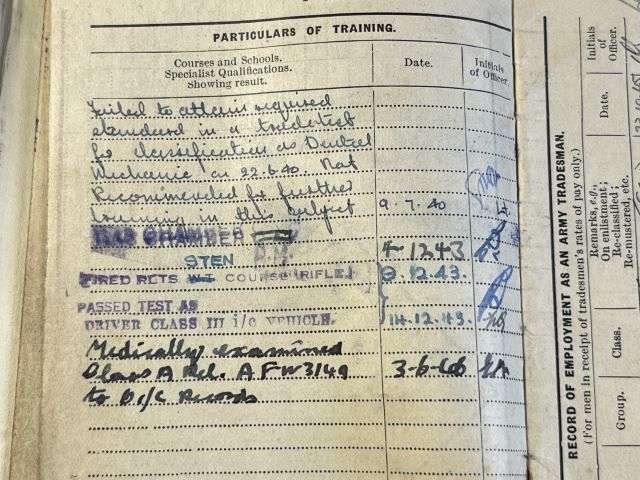 PARTICULARS OF TRAINING.
Courses and Schools. Date. Initials
Specialist Qualifications. of Officer.
Showing result.
Failed to attain required
standard in a tradetest
for classification as Dental
Mechanic on 22.6.40. Not
Recommended for further
training in this subject 9.7.40
GAS CHAMBER
CHAMBER 4-12.43
STEN
FIRED RCTS COURSE (RIFLE) 9.12.43.
PASSED TEST AS
DRIVER CLASS III i/c VEHICLE. 14.12.43.
Medically examined
Class A Rel. A F W 3149 3-6-46
to O i/c Records
RECORD OF EMPLOYMENT AS AN ARMY TRADESMAN.
(For men in receipt of tradesmen's rates of pay only.)
Group.
Class.
Remarks, e.g.,
On enlistment;
Re-classified;
Re-mustered, etc.
Date.
Initials
of
Officer.